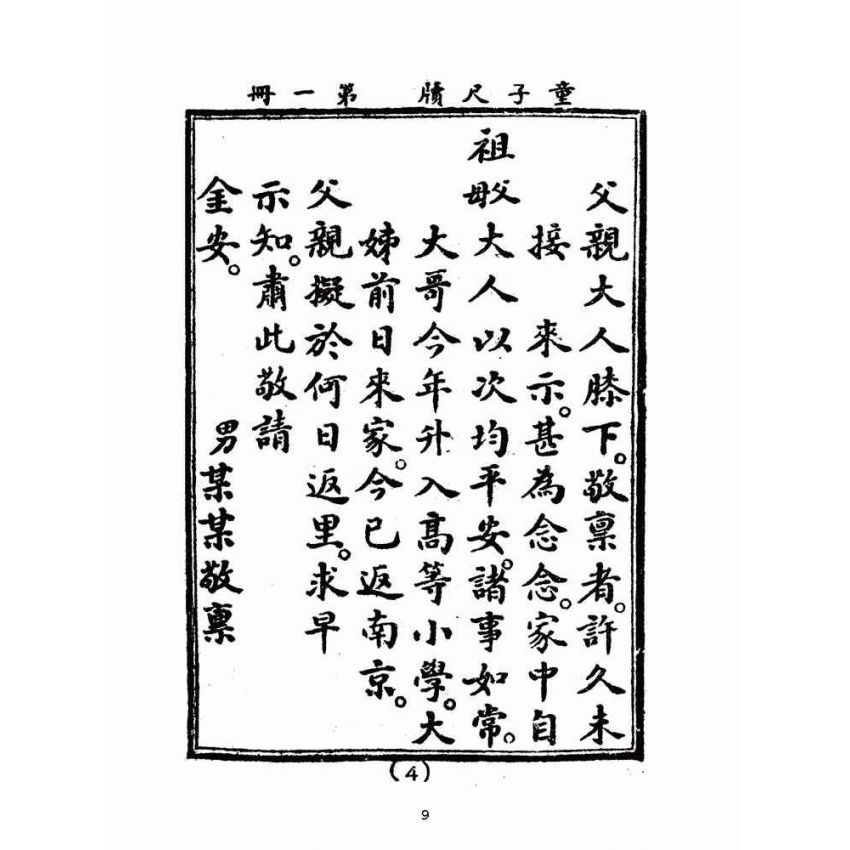 童子尺牘 第一冊
父親大人膝下。敬稟者。許久未
接 來示。甚為念念。家中自
祖父母大人以次均平安。諸事如常。
大哥今年升入高等小學。大
姊前日來家。今已返南京。
父親擬於何日返里。求早
示知。肅此敬請
金安。 男某某敬稟
(4)
9